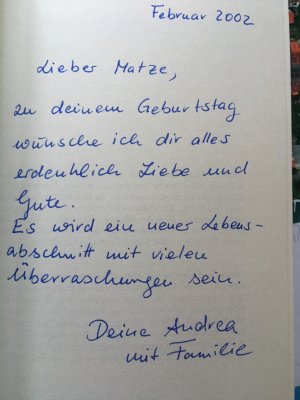 Februar 2002
Lieber Matze,
zu deinem Geburtstag
wünsche ich dir alles
erdenklich Liebe und
Gute.
Es wird ein neuer Lebens-
abschnitt mit vielen
Überraschungen sein.
Deine Andrea
mit Familie